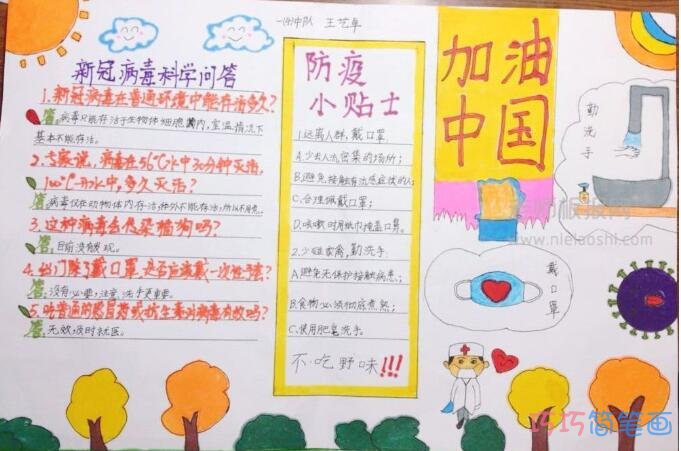 一(4)中队 王艺卓
新冠病毒科学问答
1.新冠病毒在普通环境中能存病多久?
答:病毒只能存活于生物体细胞内,室温情况下
基本不能存活。
2.专家说,病毒在56℃水中30分钟灭活,
100℃开水中,多久灭活?
答:病毒仅在动物体内存活,体外不能存活,所以不用煮。
3.这种病毒会传染猫狗吗?
答:目前没有发现。
4.出门除了戴口罩,是否应该戴一次性手套?
答:没有必要,注意洗手更重要。
5.吃普通的感冒药或抗生素对病毒有效吗?
答:无效,及时就医。
防疫
小贴士
1.远离人群,戴口罩
A.少去人流密集的场所;
B.避免接触有流感症状的人;
C.合理佩戴口罩;
D.咳嗽时用纸巾掩盖口鼻。
2.少碰家禽,勤洗手
A.避免无保护接触病患;
B.食物必须彻底煮熟;
C.使用肥皂洗手。
不吃野味!!!
加油
中国
勤洗手
戴口罩
老师板报网
www.nielaoshi.com
巧巧简笔画